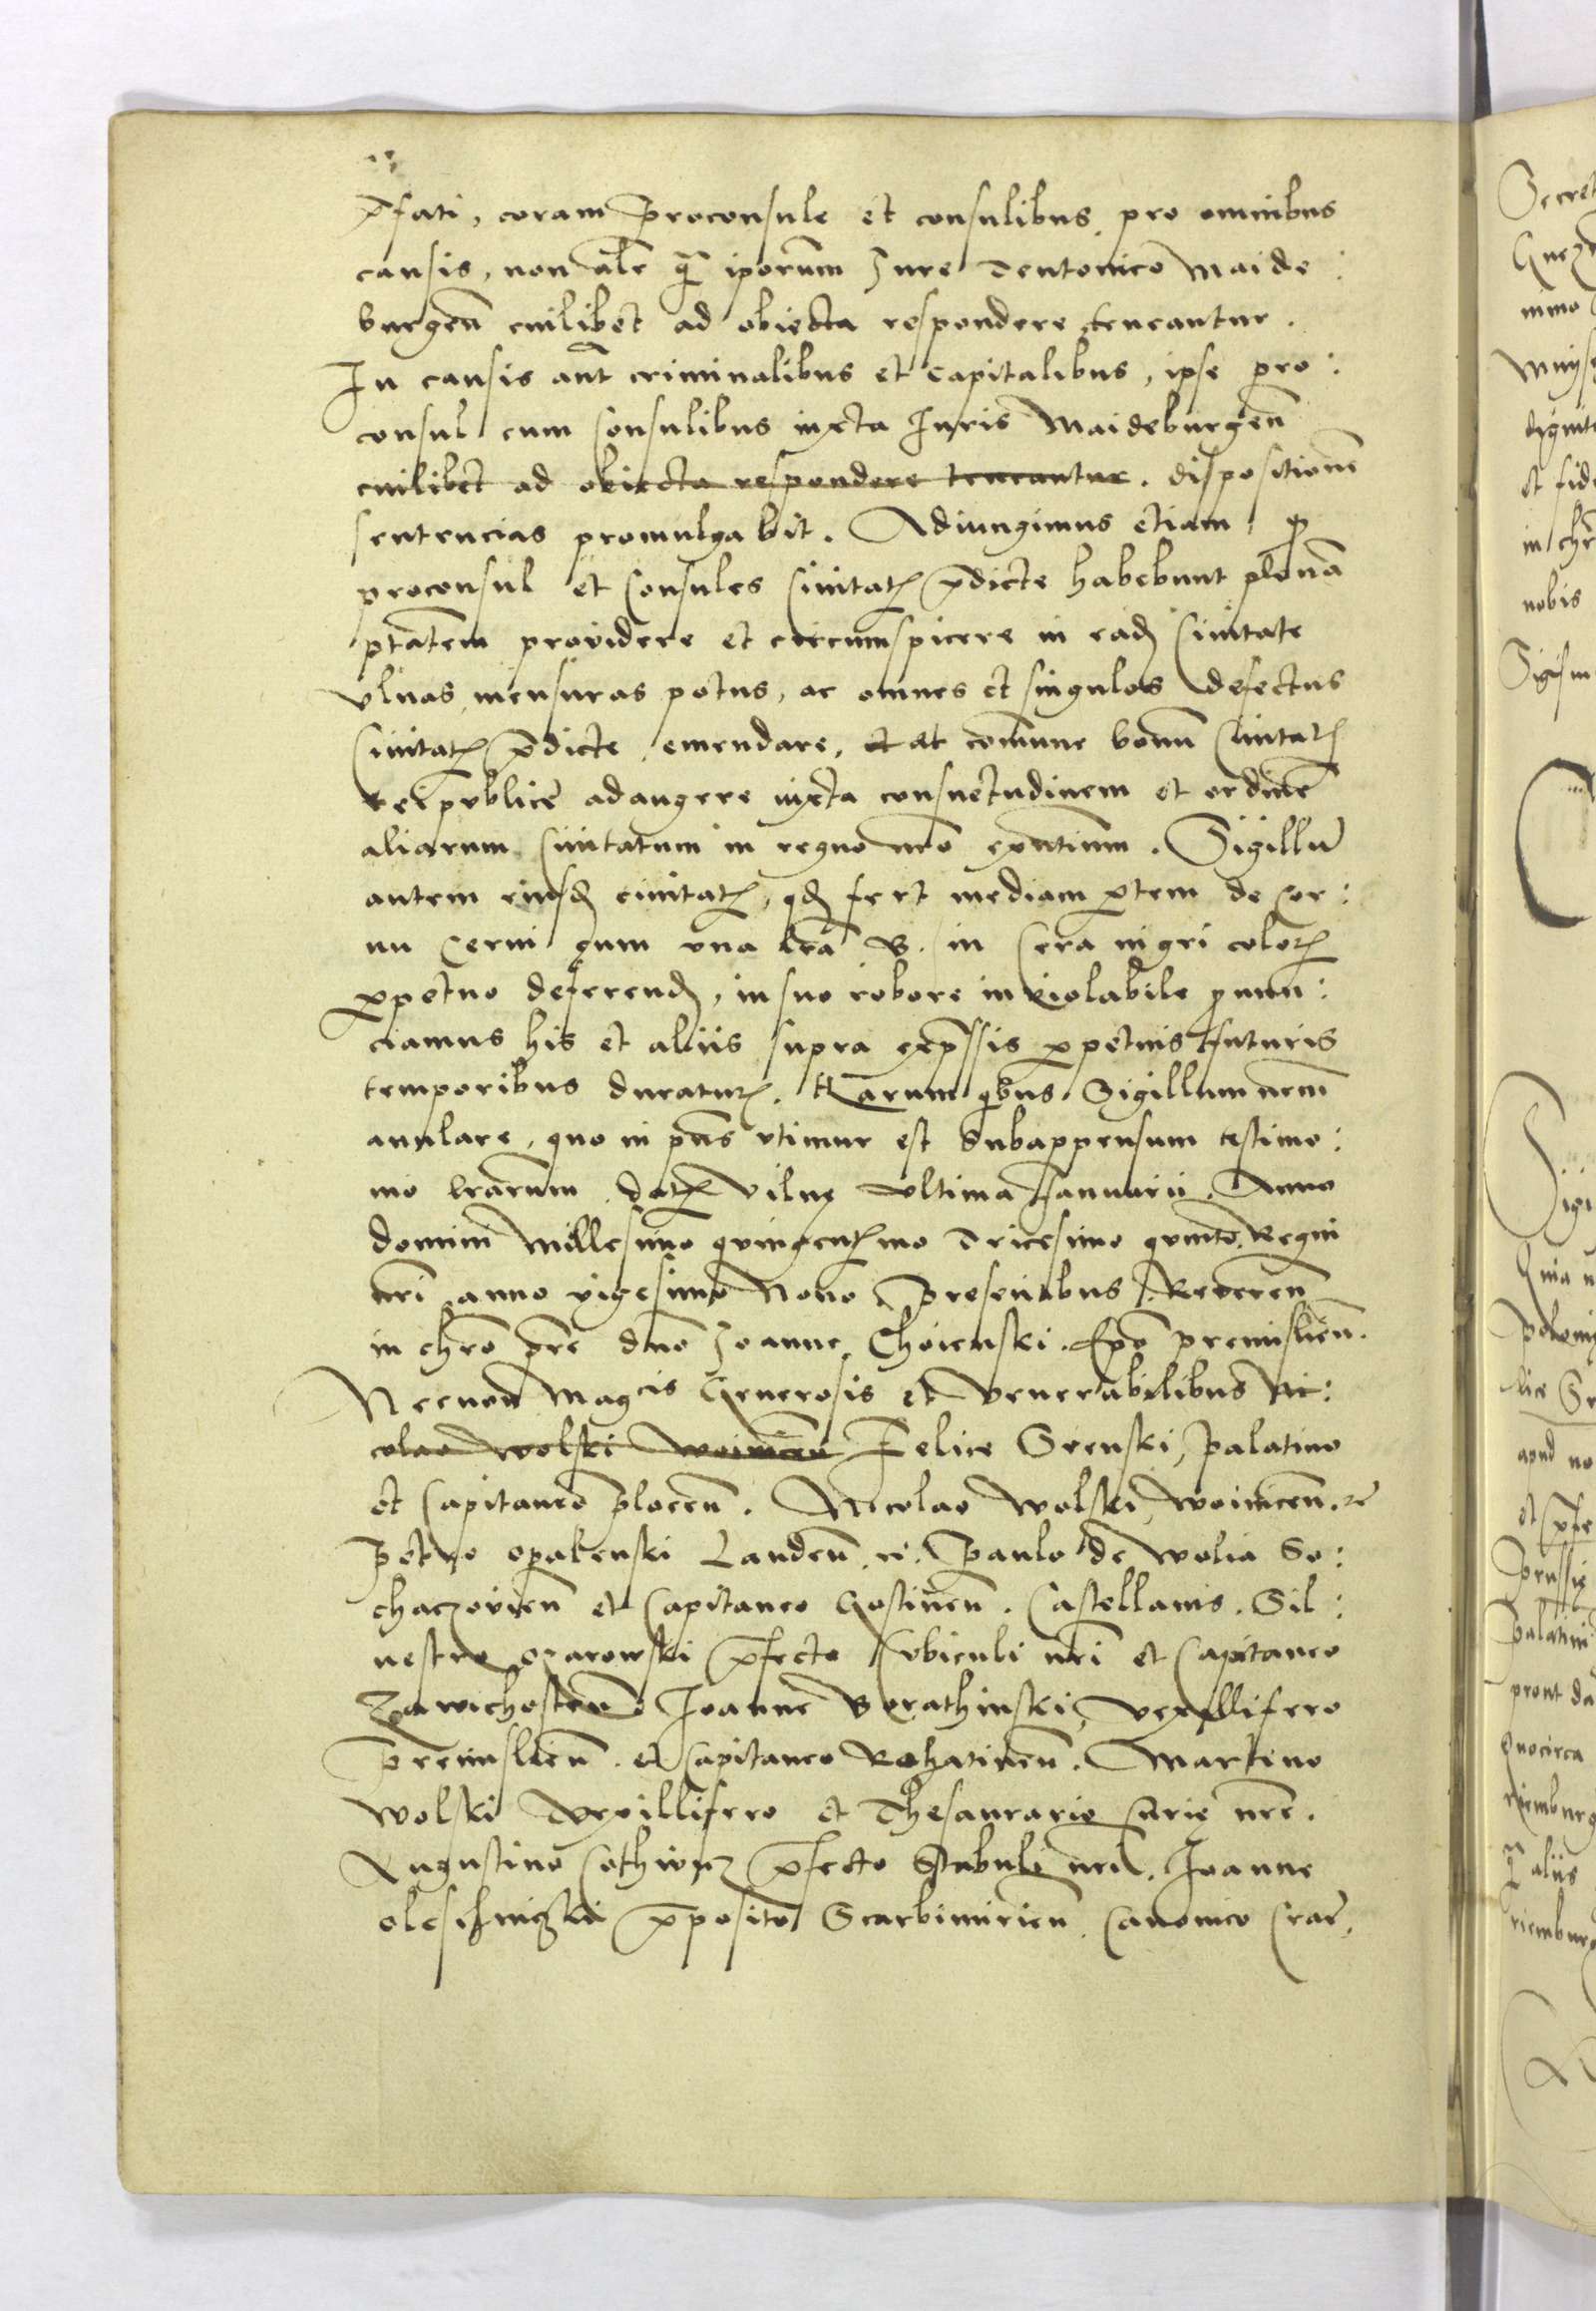 p̄fati, coram Proconsule et consulibus pro omnibus
causis, non alr̄ q̄ ip̄orum Jure Teutonico Maide:
burgen̄ cuilibet ad obiecta respondere teneantur.
In causis aut̄ criminalibus et capitalibus, ipse pro:
consul cum Consulibus iuxta Juris Maideburgen̄
cuilibet ad obiecta respondere teneantur. dispositionē
sentencias promulgabit. Adiungimus etiam q̄
proconsul et Consules Ciuitatꝭ p̄dicte habebunt plenā
ptātem prouidere et circumspicere in eadꝫ Ciuitate
vlnas, mensuras potus, ac omnes et singulos defectus
Ciuitatꝭ p̄dicte emendare, et at com̄une bonū Ciuitatꝭ
Reipublice adaugere iuxta consuetudinem et ordinē
aliarum Ciuitatum in regno nr̄o exn̄tium. Sigillū
autem eiusdꝫ ciuitatꝭ, qdꝫ fert mediam ꝑtem de Cor:
nu Cerui cum vna lr̄a B. in Cera nigri colorꝭ
ꝑpetuo deferendꝫ, in suo robore inuiolabile ꝓnun:
ciamus his et aliis supra exp̄ssis ꝑpetuis futuris
temporibus duraturꝭ. Harum qibus Sigillum nr̄m
anulare, quo in pn̄s vtimur est Subappensum testimo:
nio lr̄arum. Datꝭ Vilnę vltima Januarii. Anno
domini Millesimo quingentꝭmo Tricesimo quinto, Regni
nr̄i anno vigesimo Nono. Presentibus Reueren̄
in chr̄o pr̄e dn̄o Joanne Choienski. Ep̄o premislien̄.
Necnon Mag͞cis Generosis et Venerabilibus Ni:
colao Wolski Woinicen̄ Felice Srenski, Palatino
et Capitaneo plocen̄. Nicolao Wolski, Woinicen̄. ꝛc̄
Petro opalenski Landen̄. ꝛc̄. Paulo de Wolia So:
chaczouien̄ et Capitaneo Gostinen̄. Castellanis. Sil:
uestro ozarowski p̄fecto Cubiculi nr̄i et Capitaneo
Zawichosten̄. Joanne Borathinski, vexillifero
Premislien̄. et Capitaneo Rohatinen̄. Martino
Wolski vexillifero et Thesaurario Curię nr̄e.
Augustino Cothwicz p̄fecto Stabuli nr̄i. Joanne
oleschniczki p̄posito Scarbimirien̄. Canonico Crac̄.